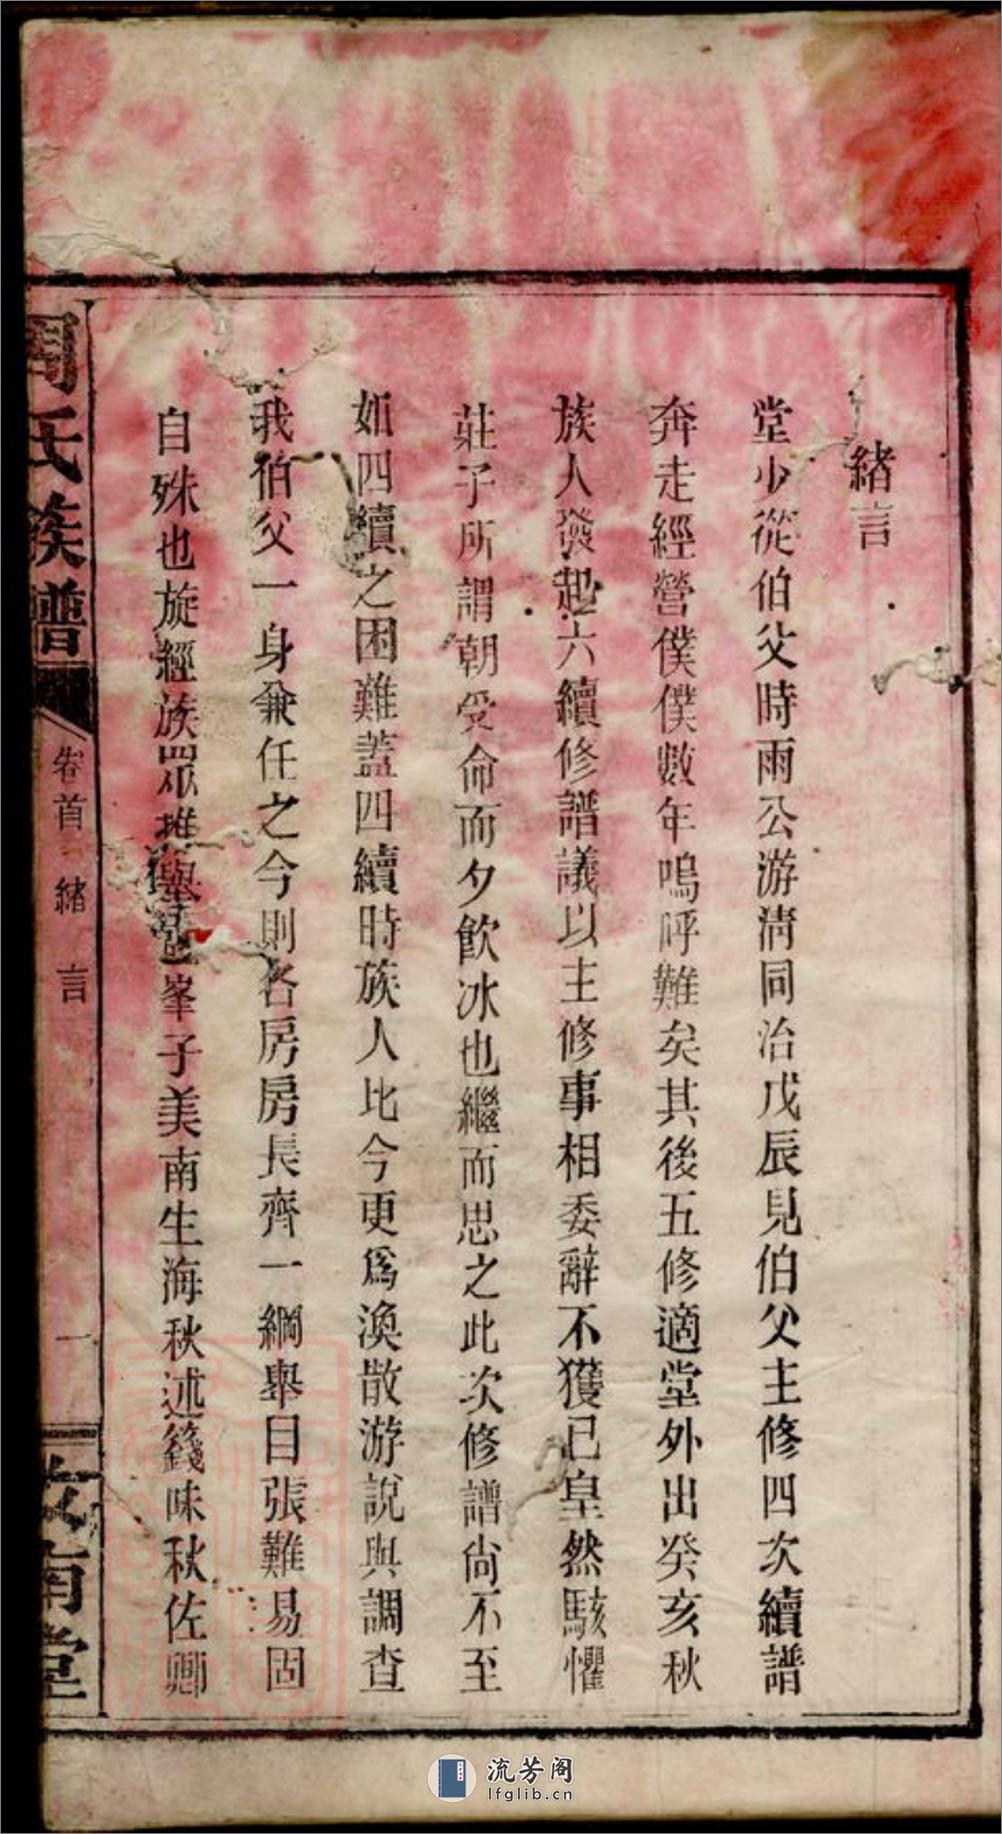 緒言
堂少從伯父時雨公游清同治戊辰見伯父主修四次續譜
奔走經營僕僕數年嗚呼難矣其後五修適堂外出癸亥秋
族人發起六續修譜議以主修事相委辭不獲已皇然駭懼
莊子所謂朝受命而夕飲冰也繼而思之此次修譜尙不至
如四續之困難蓋四續時族人比今更爲渙散游說與調查
我伯父一身兼任之今則各房房長齊一綱舉目張難易固
自殊也旋經族眾推舉峯子美南生海秋述籛味秋佐卿
周氏族譜
卷首
緒言
一
汝南堂
流芳阁
lfglib.cn